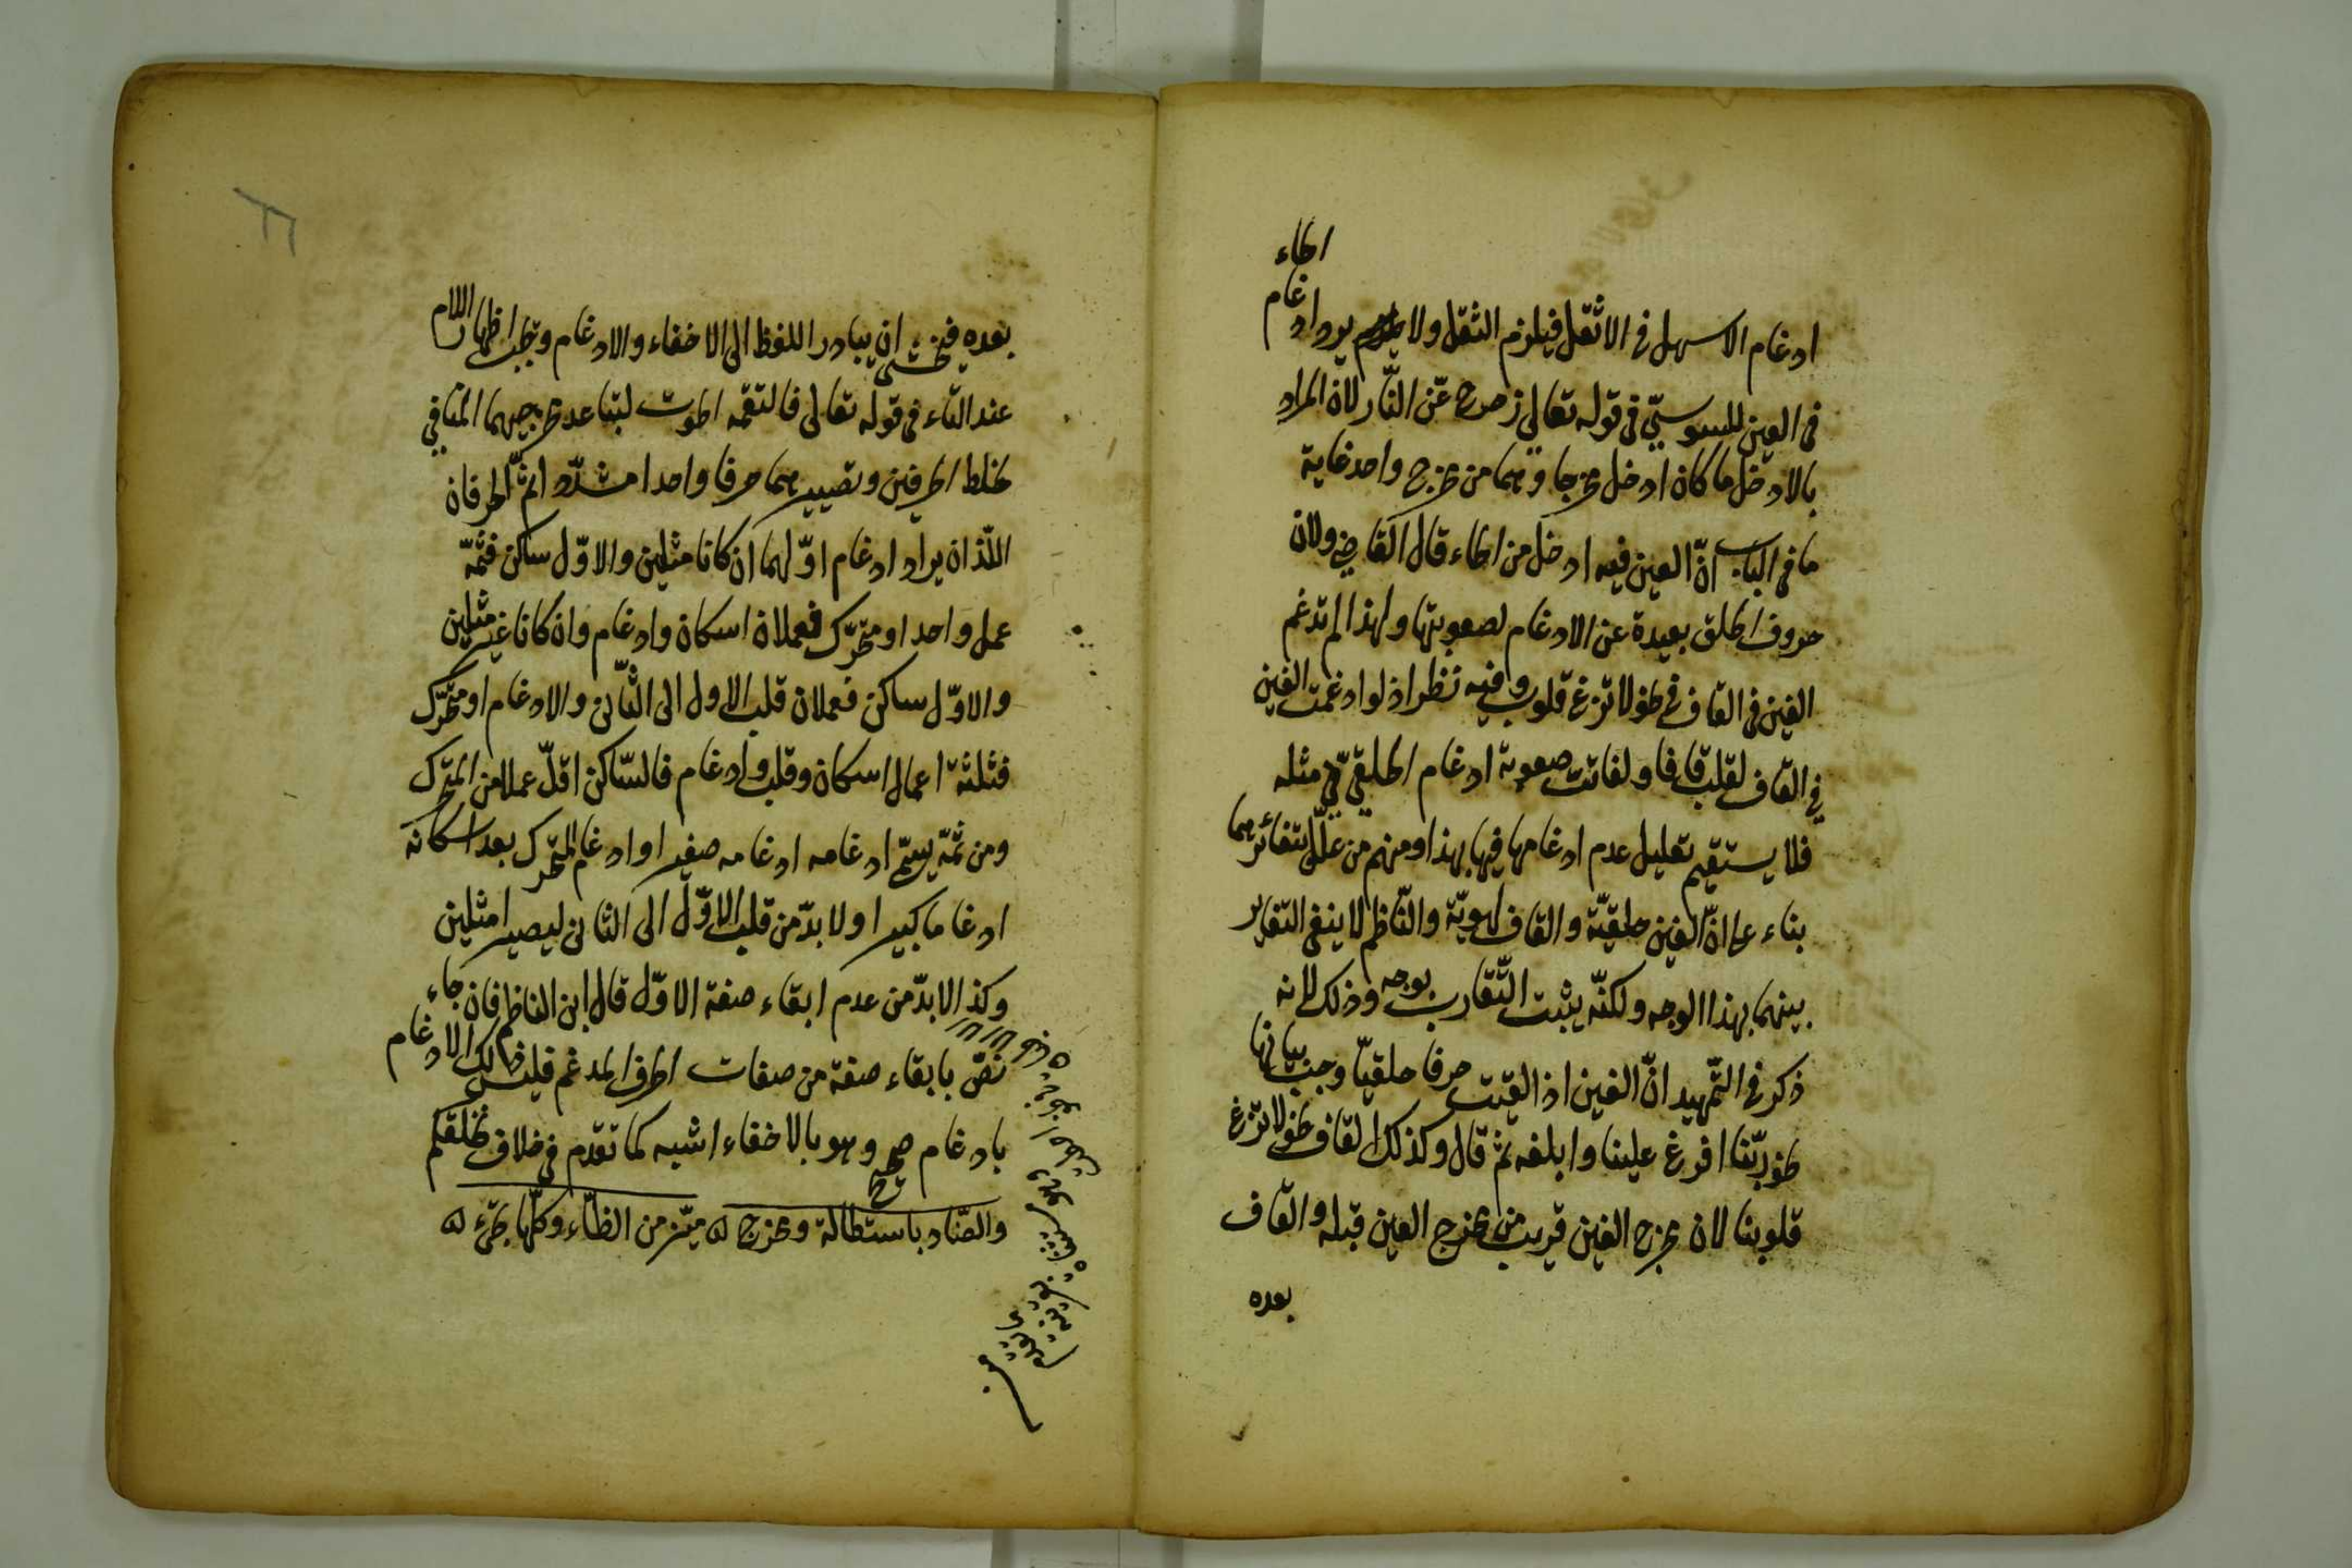 ادغام الاسهل فى الاثقل فيلزم الثقل ولا يرد ادغام الحاء
فى العين للسوسىّ فى قوله تعالى زحزح عن النّار لان المراد
بالادخل ما كان ادخل مخرجا وهما من مخرج واحد غاية
ما فى الباب انّ العين فيه ادخل من الحاء قال القاضى ولان
حروف الحلق بعيدة عن الادغام لصعوبتها ولهذا لم تدغم
الغين فى القاف فى نحو لا تزغ قلوب وفيه نظر اذ لو ادغمت الغين
فى القاف لقلبت قافا ولفاتت صعوبة ادغام الحلقىّ فى مثله
فلا يستقيم تعليل عدم ادغامها فيها بهذا ومنهم من علّل بتغائرهما
بناء على انّ الغين حلقيّة والقاف لهويّة والنّاظم لا ينفى التغاير
بينهما بهذا الوجه ولكنّه يثبت التّقارب بوجه وذلك لانه
ذكر فى التّمهيد انّ الغين اذا لقيت حرفا حلقيّا وجب بيانها
نحو ربّنا افرغ علينا وابلغه ثم قال وكذلك القاف نحو لا تزغ
قلوبنا لان مخرج الغين قريب من مخرج العين قبله والقاف
بعده
بعده فيخشى ان يبادر اللفظ الى الاخفاء والادغام ويجب اظهار اللام
عند التاء فى قوله تعالى فالتقمه الحوت لتباعد مخرجيهما المنافى
لخلط الحرفين وتصييرهما حرفا واحدا مشدّدا ثمّ الحرفان
اللّذان يراد ادغام اوّلهما ان كانا مثلين والاوّل ساكن فثمّه
عمل واحد او متحرّك فعملان اسكان وادغام وان كانا غير مثلين
والاوّل ساكن فعملان قلب الاول الى الثّانى والادغام او متحرّك
فثلثة اعمال اسكان وقلب وادغام فالسّاكن اقلّ عملا من المتحرّك
ومن ثمّه يسمّى ادغامه ادغامه صغيرا وادغام المتحرّك بعد اسكانه
ادغاما كبيرا ولا بدّ من قلب الاوّل الى الثانى ليصيرا مثلين
وكذا لا بدّ من عدم ابقاء صفة الاوّل قال ابن الناظم فان جاء
نصّ بابقاء صفة من صفات الحرف المدغم فليس ذلك الادغام
بادغام صحيح وهو بالاخفاء اشبه كما تقدم فى خلاف نخلقكم
والضّاد باستطالة ومخرج ميّز من الظّاء وكلّها تجىء